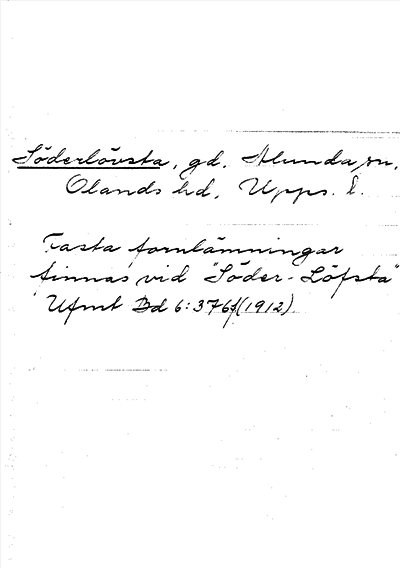 Söderlövsta, gd, Alunda sn,
Olands hd, Upps. l.
Fasta fornlämningar
finnas vid "Söder-Löfsta"
Ufmt Bd 6:376f(1912).